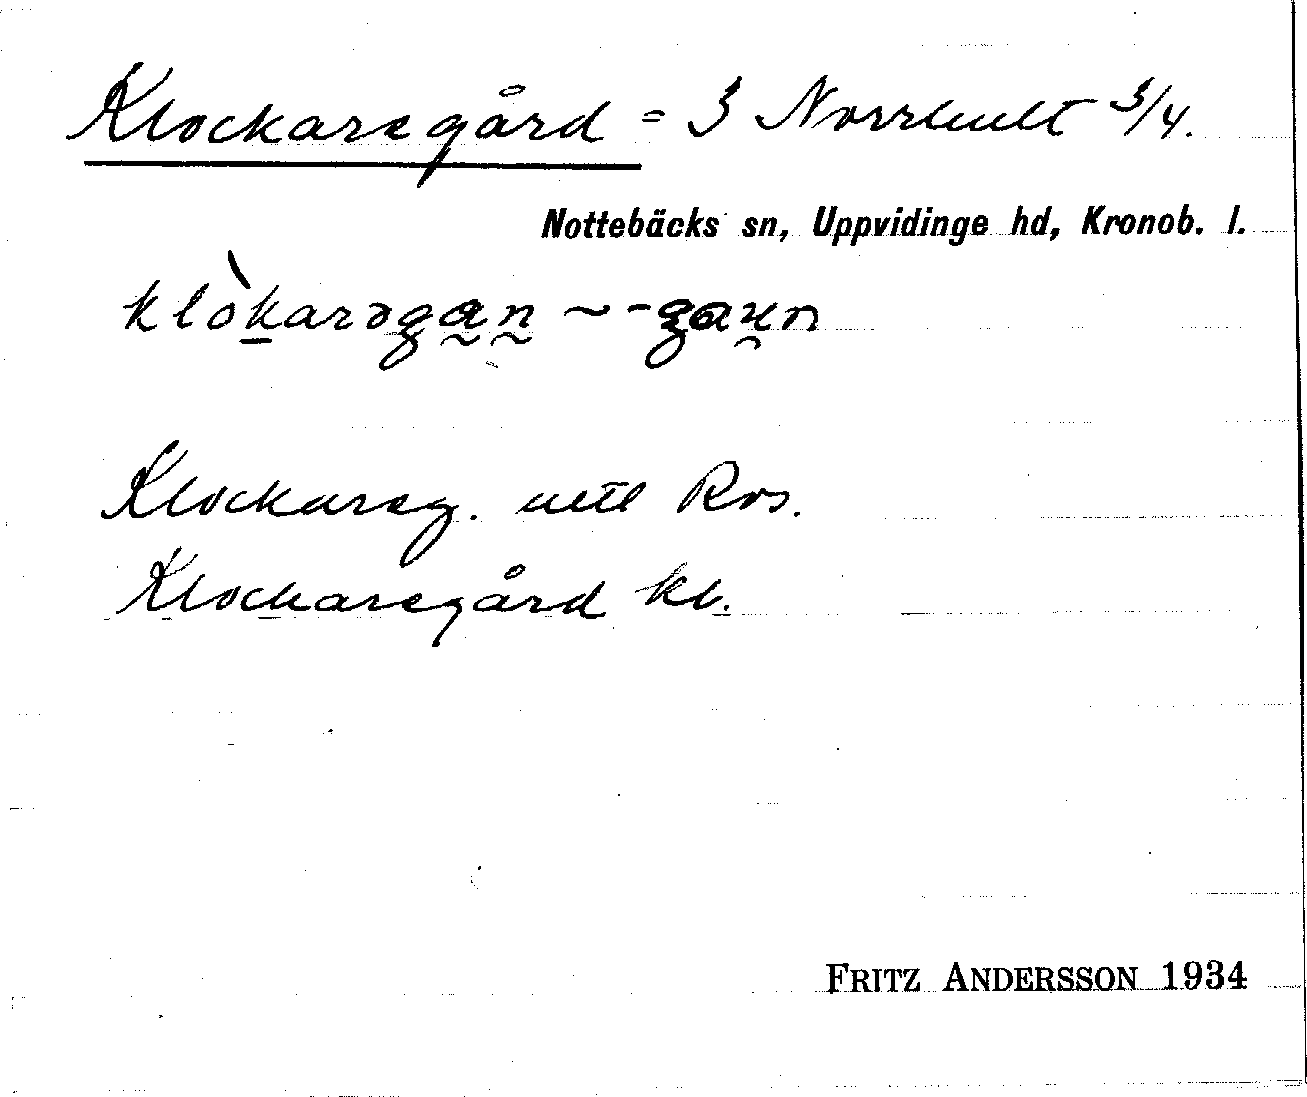 Klockaregård = 3 Norrhult 3/4.
Nottebäcks sn, Uppvidinge hd, Kronob. l.
klòkarəgan ~ -gaun
Klockareg. uttl Ros.
Klockaregård kb.
FRITZ ANDERSSON 1934